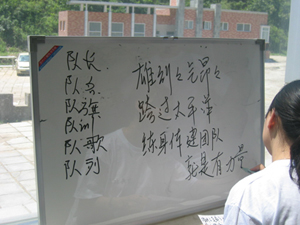 队长
队名
队旗
队训
队歌
队列
雄纠々气昂々
跨过太平洋
练身体建团队
就是有力量